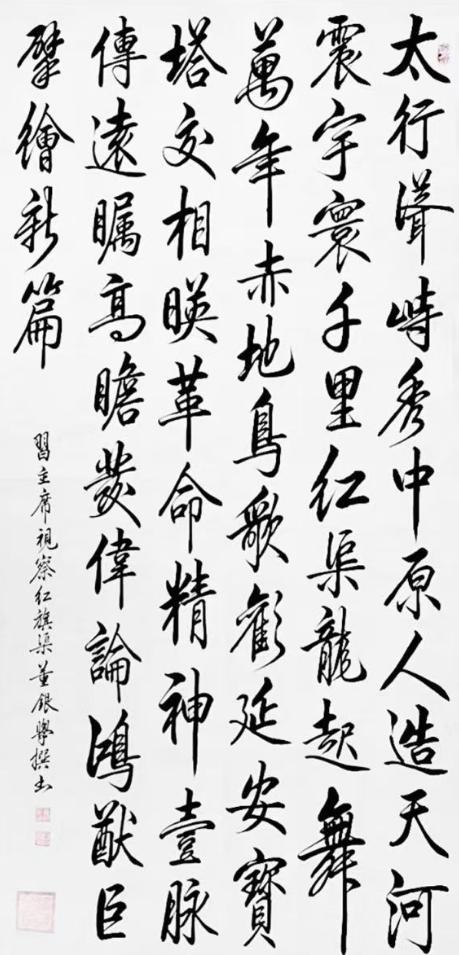 太行聳峙秀中原人造天河
震宇寰千里紅渠龍起舞
萬年赤地鳥歌歡延安寶
塔交相映革命精神壹脉
傳遠矚高瞻發偉論鴻猷巨
擘繪新篇
習主席視察紅旗渠董銀學撰書